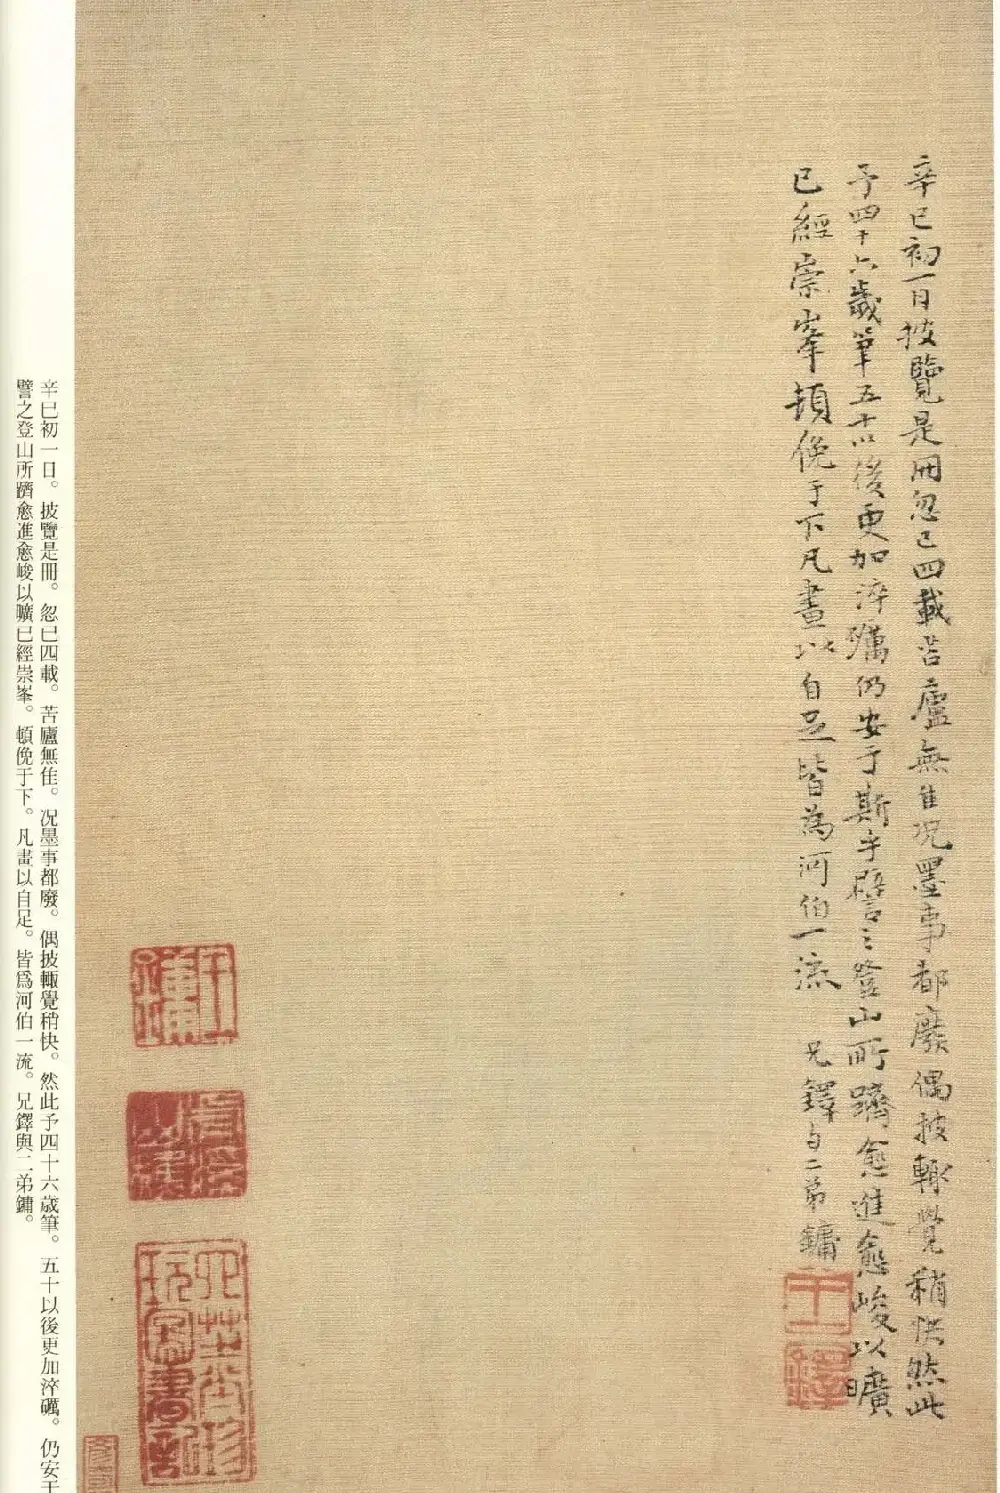 辛巳初一日披覽是冊忽已四載苦廬無佳況墨事都廢偶披輒覺稍快然此
予四十六歲筆五十以後更加淬礪仍安于斯乎譬之登山所躋愈進愈峻以曠
已經崇峯頓俛于下凡畫以自足皆為河伯一流 兄鐸與二弟鏞
王鐸
辛巳初一日。披覽是冊。忽已四載。苦廬無佳。況墨事都廢。偶披輒覺稍快。然此予四十六歲筆。五十以後更加淬礪。仍安于
譬之登山所躋愈進愈峻以曠已經崇峯。頓俛于下。凡畫以自足。皆爲河伯一流。兄鐸與二弟鏞。